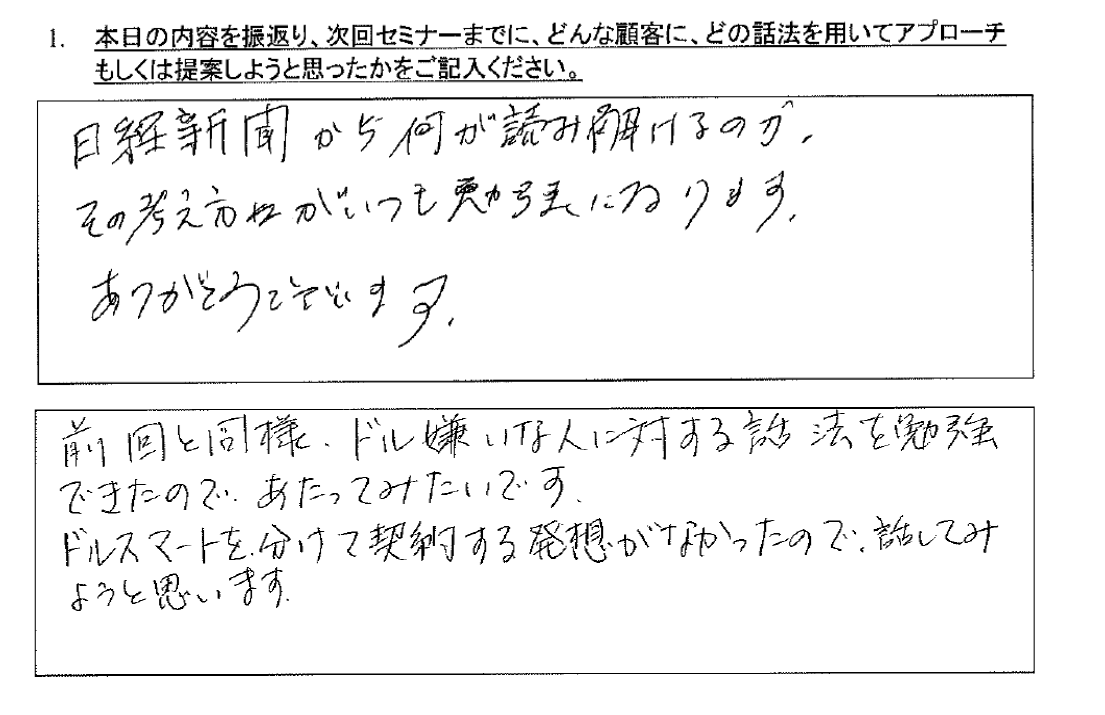 1. 本日の内容を振返り、次回セミナーまでに、どんな顧客に、どの話法を用いてアプローチ
もしくは提案しようと思ったかをご記入ください。
日経新聞から何が読み解けるのか、
その考え方がいつも勉強になります。
ありがとうございます。
前回と同様、ドル嫌いな人に対する話法を勉強
できたので、あたってみたいです。
ドルスマートを分けて契約する発想がなかったので、話してみ
ようと思います。